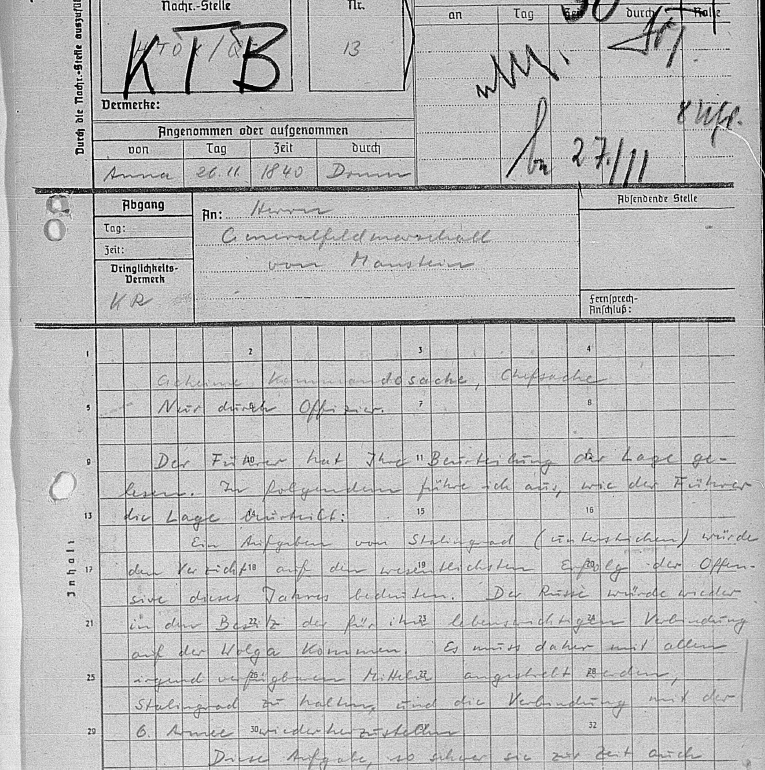 Durch die Nachr.-Stelle auszufül
Nachr.-Stelle
Nr.
KTB
13
Vermerke:
Angenommen oder aufgenommen
von Tag Zeit durch
Anna 26.11. 1840
an Tag Zeit durch Rolle
27./11
Abgang
Tag:
Zeit:
Dringlichkeits-
Vermerk
KR
An: Herrn
Generalfeldmarschall
von Manstein
Absendende Stelle
Fernsprech-
Anschluß:
Inhalt
1 2 3 4
Geheime Kommandosache, Chefsache
5 Nur durch Offizier. 7 8
9 Der Führer hat Ihre 11 Beurteilung der Lage ge-
lesen. Im folgenden führe ich aus, wie der Führer
13 die Lage beurteilt: 15 16
Ein Aufgeben von Stalingrad (unterstrichen) würde
17 den Verzicht 18 auf den wesentlichsten Erfolg der Offen-
sive dieses Jahres bedeuten. Der Russe würde wieder
21 in den Besitz der für ihn lebenswichtigen Verbindung
auf der Wolga kommen. Es muss daher mit allen
25 irgend verfügbaren Mitteln angestrebt werden,
Stalingrad zu halten, und die Verbindung mit der
29 6. Armee 30 wiederherzustellen 32
Diese Aufgabe, so schwer sie zur Zeit auch